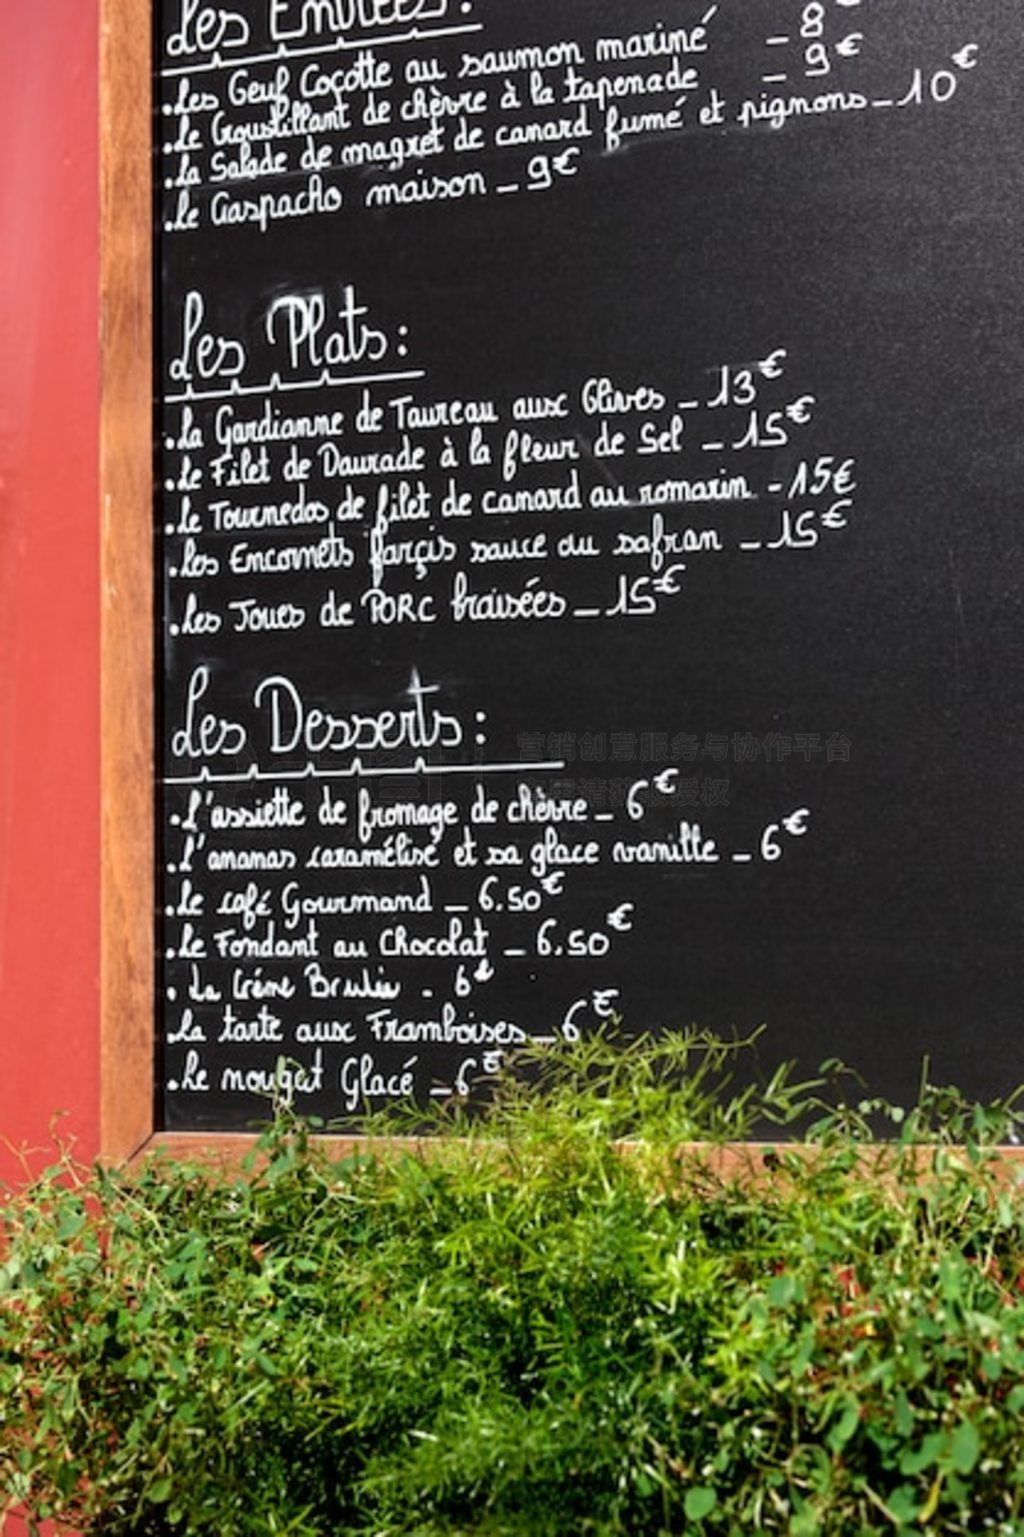 Les Entrées:
.Les Oeuf Coçotte au saumon mariné _ 8€
.Le Croustillant de chèvre à la tapenade _ 9€
.La Salade de magret de canard fumé et pignons _ 10€
.Le Gaspacho maison _ 9€
Les Plats:
.La Gardianne de Taureau aux Olives _ 13€
.Le Filet de Daurade à la fleur de Sel _ 15€
.Le Tournedos de filet de canard au romarin - 15€
.Les Encornets farçis sauce au safran _ 15€
.Les Joues de PORC braisées _ 15€
Les Desserts:
营销创意服务与协作平台
.L'assiette de fromage de chèvre _ 6€
.L'ananas caramélisé et sa glace vanille _ 6€
.Le café Gourmand _ 6.50€
.Le Fondant au Chocolat _ 6.50€
.La Crème Brulée - 6€
.La tarte aux Framboises _ 6€
.Le nougat Glacé _ 6€